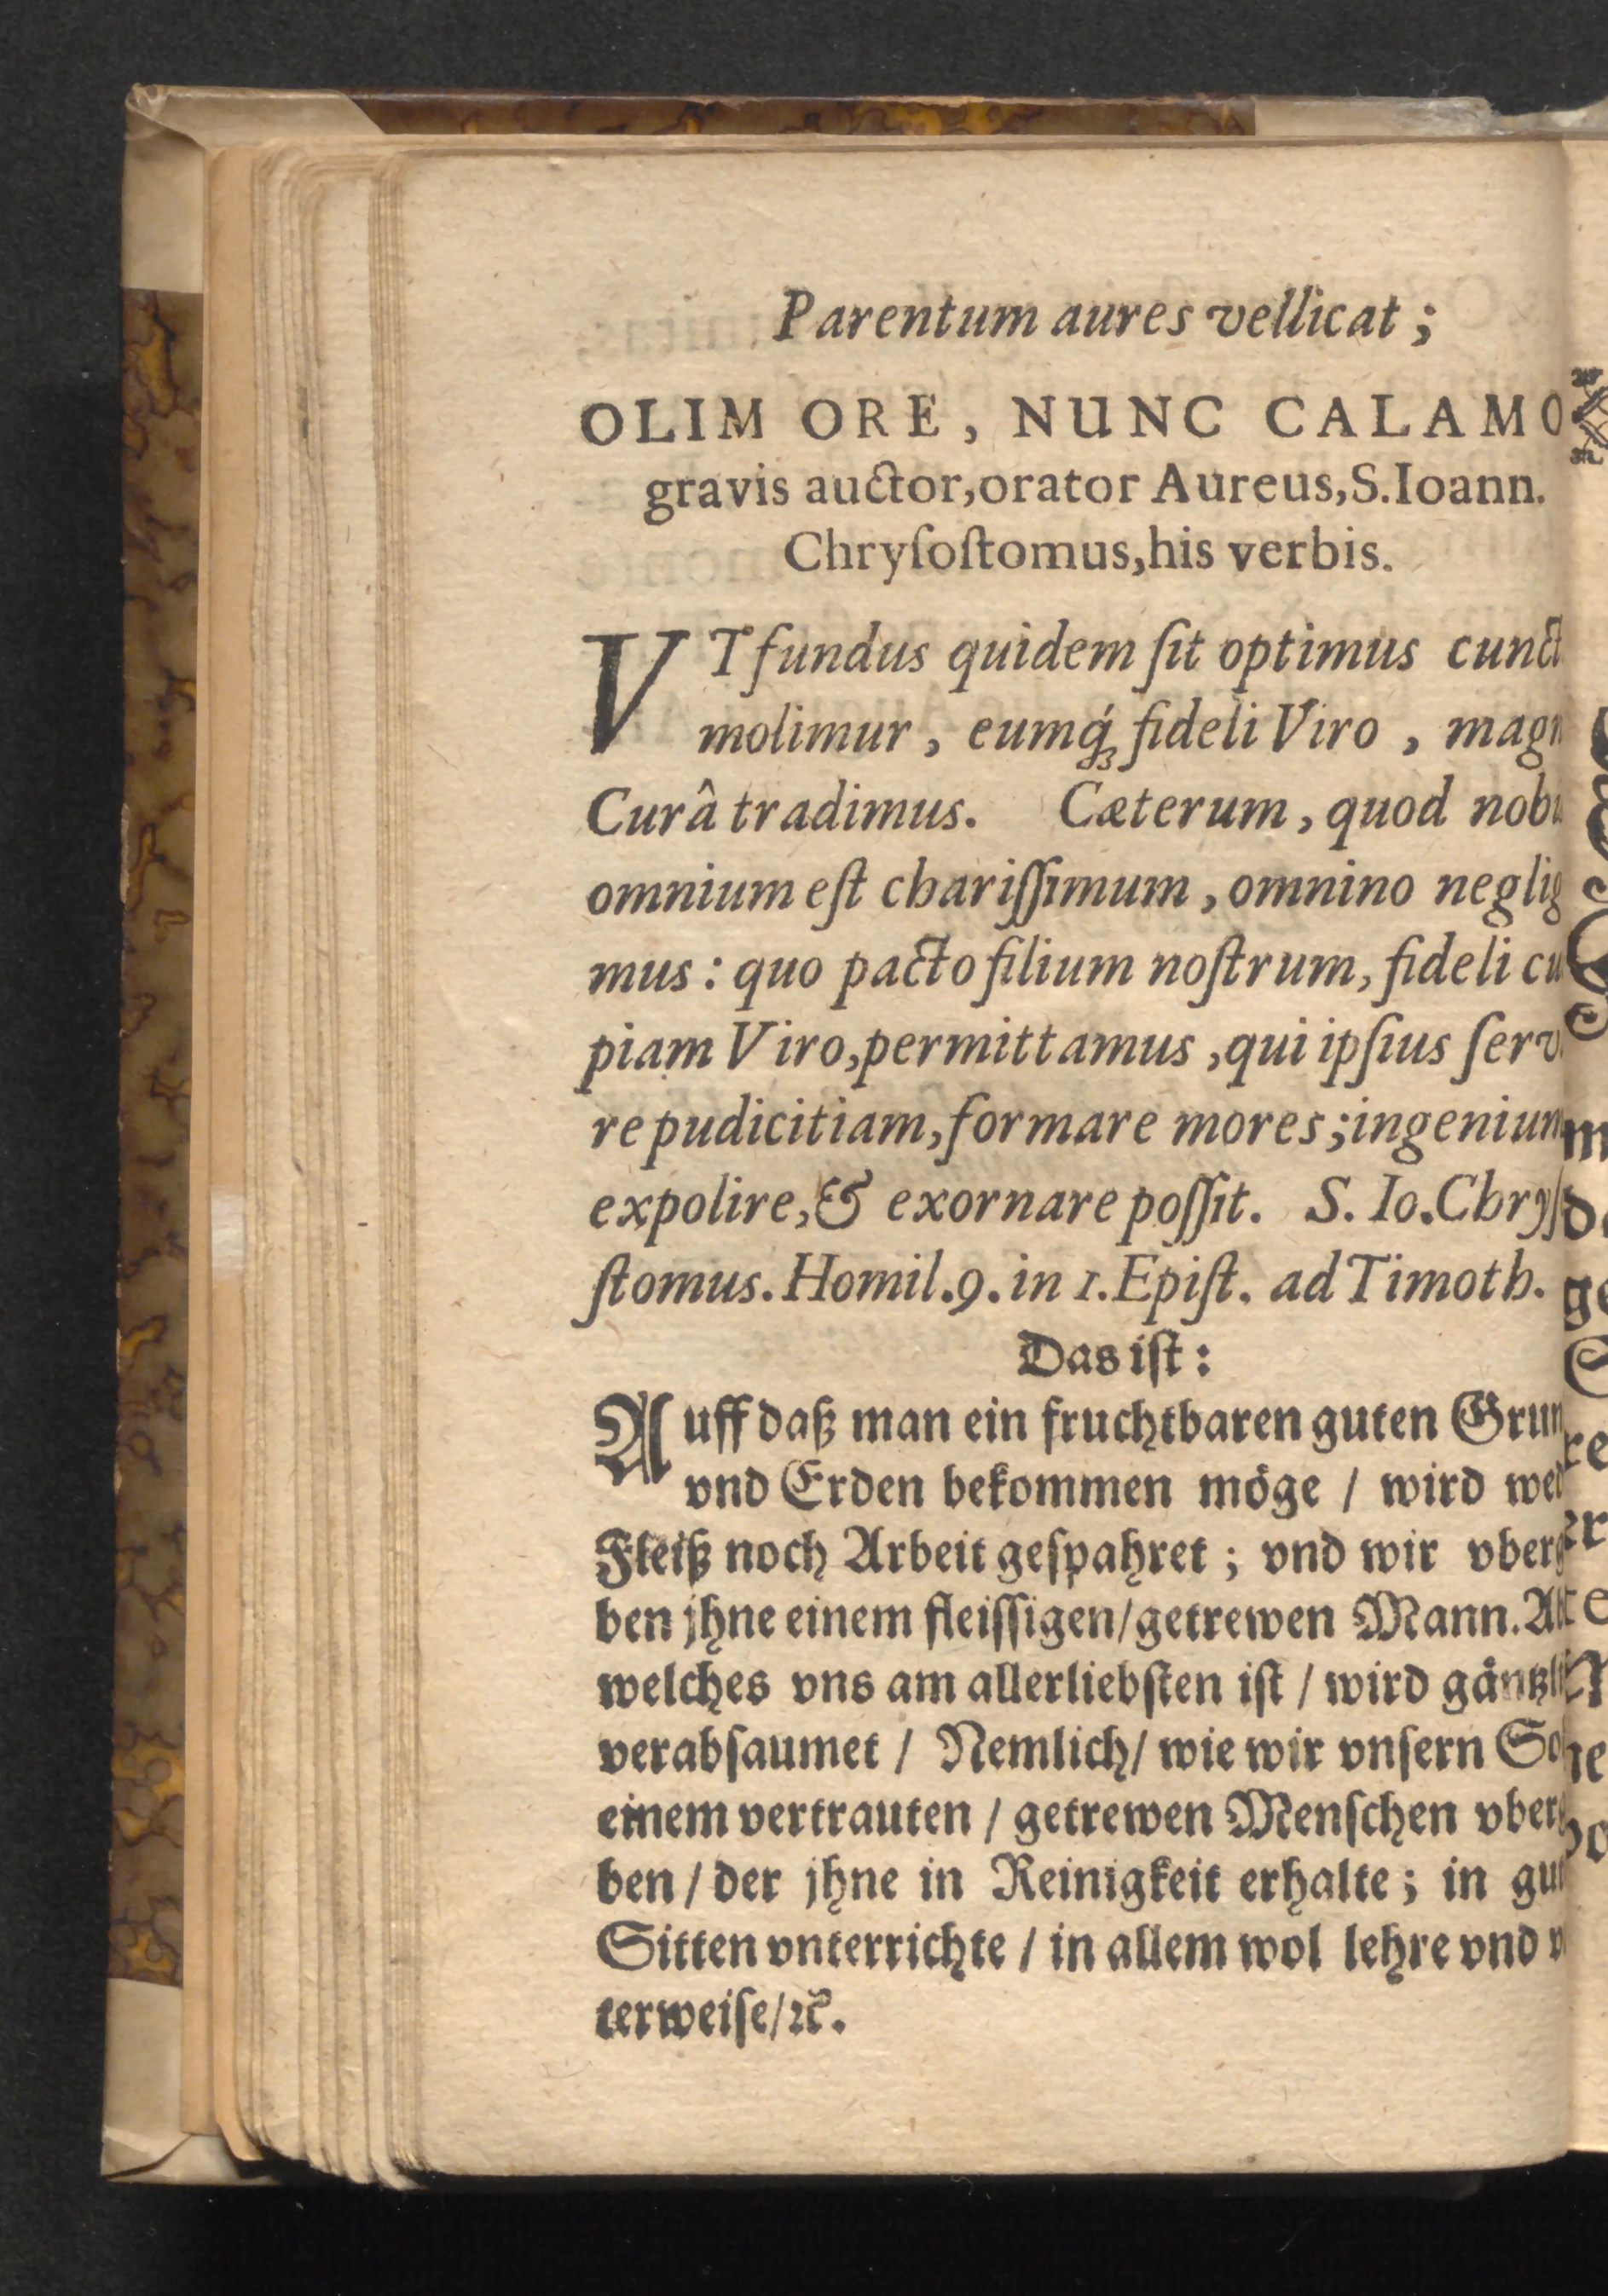 Parentum aures vellicat;
OLIM ORE, NUNC CALAMO
gravis auctor, orator Aureus, S. Ioann.
Chryſoſtomus, his verbis.
VT fundus quidem ſit optimus cunct
molimur, eumq́ꝫ fideli Viro, mag
Curâ tradimus. Cæterum, quod nob
omnium eſt chariſſimum, omnino neglig
mus: quo pacto filium noſtrum, fideli cu
piam Viro, permittamus, qui ipſius ſerv
re pudicitiam, formare mores; ingenium
expolire, & exornare poſſit. S. Io. Chryſ
ſtomus. Homil. 9. in 1. Epiſt. ad Timoth.
Das iſt:
Auff daß man ein fruchtbaren guten Grun
vnd Erden bekommen möge / wird wed
Fleiß noch Arbeit geſpahret; vnd wir vberg
ben jhne einem fleiſſigen/ getrewen Mann. A
welches vns am allerliebſten iſt / wird gäntzli
verabſaumet / Nemlich/ wie wir vnſern So
einem vertrauten / getrewen Menſchen vberg
ben / der jhne in Reinigkeit erhalte; in gu
Sitten vnterrichte / in allem wol lehre vnd
terweiſe/ ꝛc.